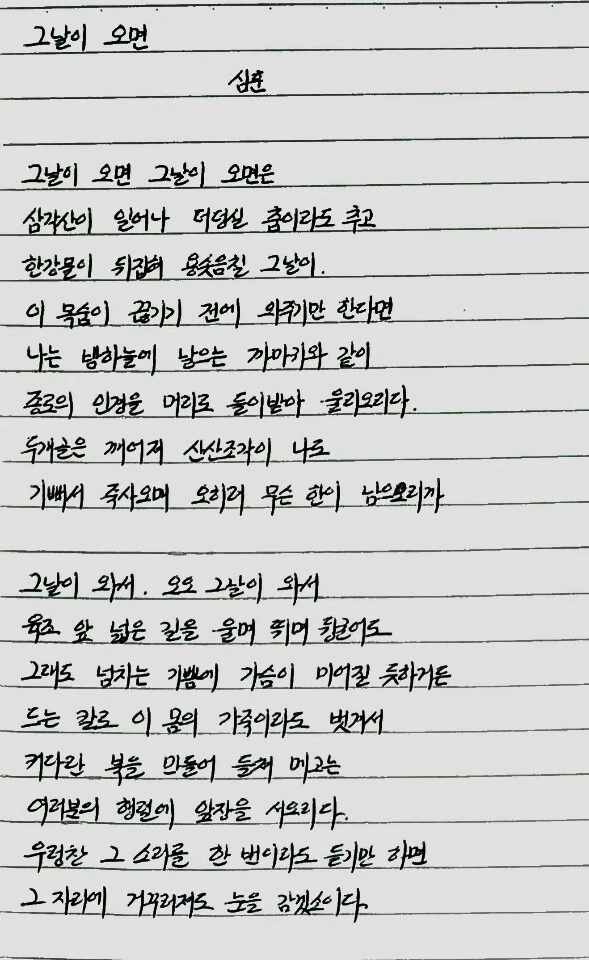 그날이 오면
심훈
그날이 오면 그날이 오면은
삼각산이 일어나 더덩실 춤이라도 추고
한강물이 뒤집혀 용솟음칠 그날이.
이 목숨이 끊기기 전에 와주기만 한다면
나는 밤하늘에 날으는 까마귀와 같이
종로의 인경을 머리로 들이받아 울리오리다.
두개골은 깨어져 산산조각이 나도
기뻐서 죽사오매 오히려 무슨 한이 남으오리까
그날이 와서. 오오 그날이 와서
육조 앞 넓은 길을 울며 뛰며 뒹굴어도
그래도 넘치는 기쁨에 가슴이 미어질 듯하거든
드는 칼로 이 몸의 가죽이라도 벗겨서
커다란 북을 만들어 들쳐 메고는
여러분의 행렬에 앞장을 서오리다.
우렁찬 그 소리를 한 번이라도 듣기만 하면
그 자리에 거꾸러져도 눈을 감겠소이다.